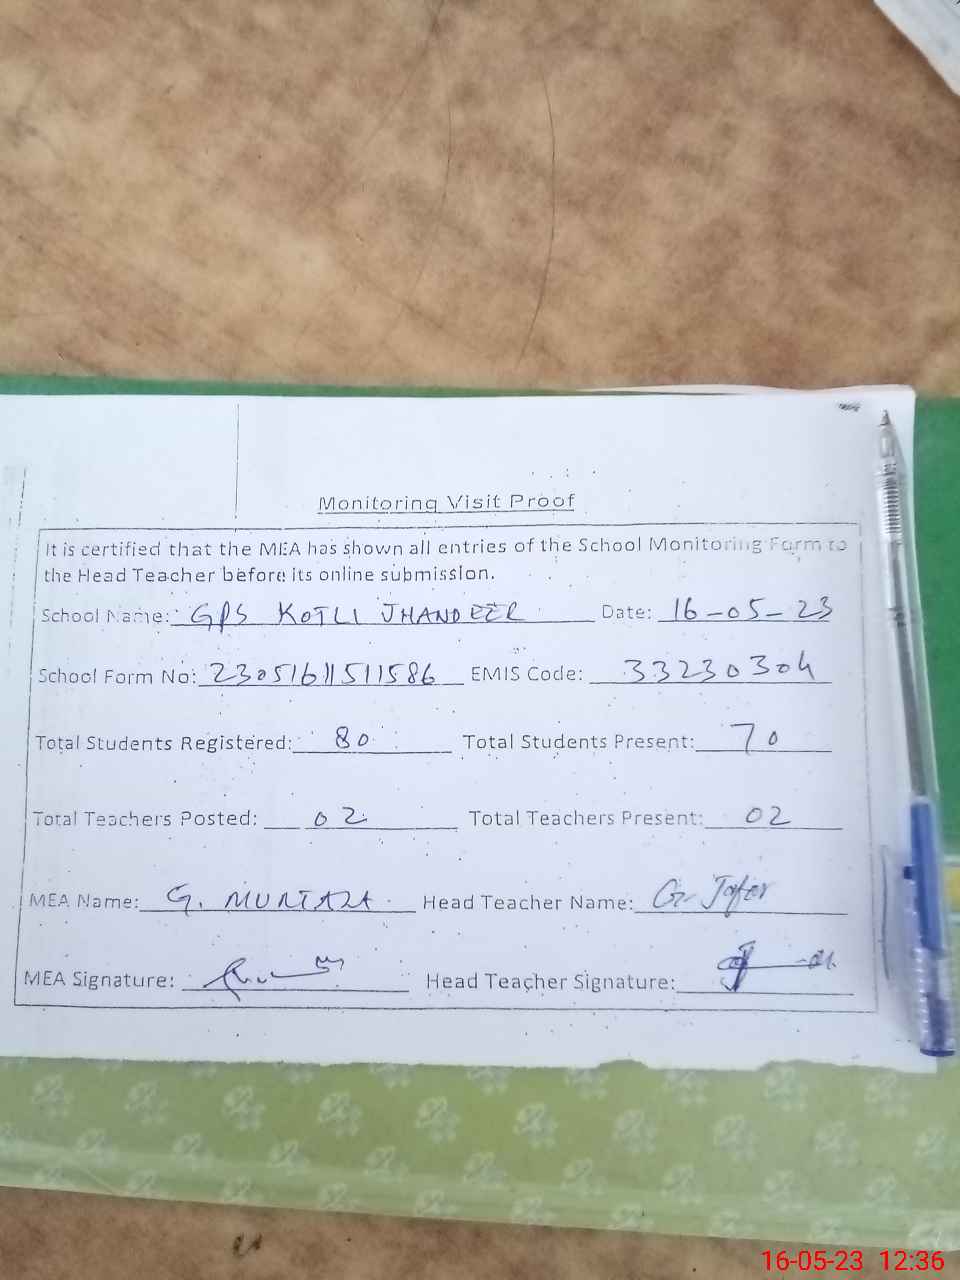 Monitoring Visit Proof
It is certified that the MEA has shown all entries of the School Monitoring Form to
the Head Teacher before its online submission.
School Name: GPS KOTLI JHANDEER Date: 16-05-23
School Form No: 23051611511586 EMIS Code: 33230304
Total Students Registered: 80 Total Students Present: 70
Total Teachers Posted: 02 Total Teachers Present: 02
MEA Name: G. MURTAZA Head Teacher Name: G. Jafer
MEA Signature: Head Teacher Signature:
16-05-23 12:36